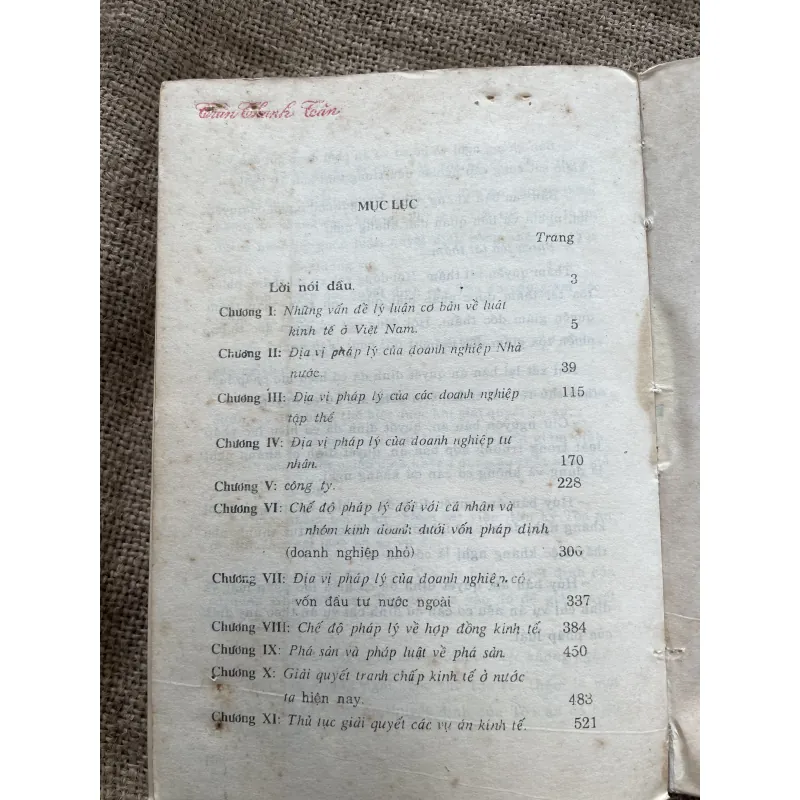 Trần Thanh Tân
MỤC LỤC
Trang
Lời nói đầu. 3
Chương I: Những vấn đề lý luận cơ bản về luật
kinh tế ở Việt Nam. 5
Chương II: Địa vị pháp lý của doanh nghiệp Nhà
nước. 39
Chương III: Địa vị pháp lý của các doanh nghiệp 115
tập thể
Chương IV: Địa vị pháp lý của doanh nghiệp tư
nhân. 170
Chương V: công ty. 228
Chương VI: Chế độ pháp lý đối với cá nhân và
nhóm kinh doanh dưới vốn pháp định
(doanh nghiệp nhỏ) 306
Chương VII: Địa vị pháp lý của doanh nghiệp có
vốn đầu tư nước ngoài 337
Chương VIII: Chế độ pháp lý về hợp đồng kinh tế. 384
Chương IX: Phá sản và pháp luật về phá sản. 450
Chương X: Giải quyết tranh chấp kinh tế ở nước
ta hiện nay. 483
Chương XI: Thủ tục giải quyết các vụ án kinh tế. 521